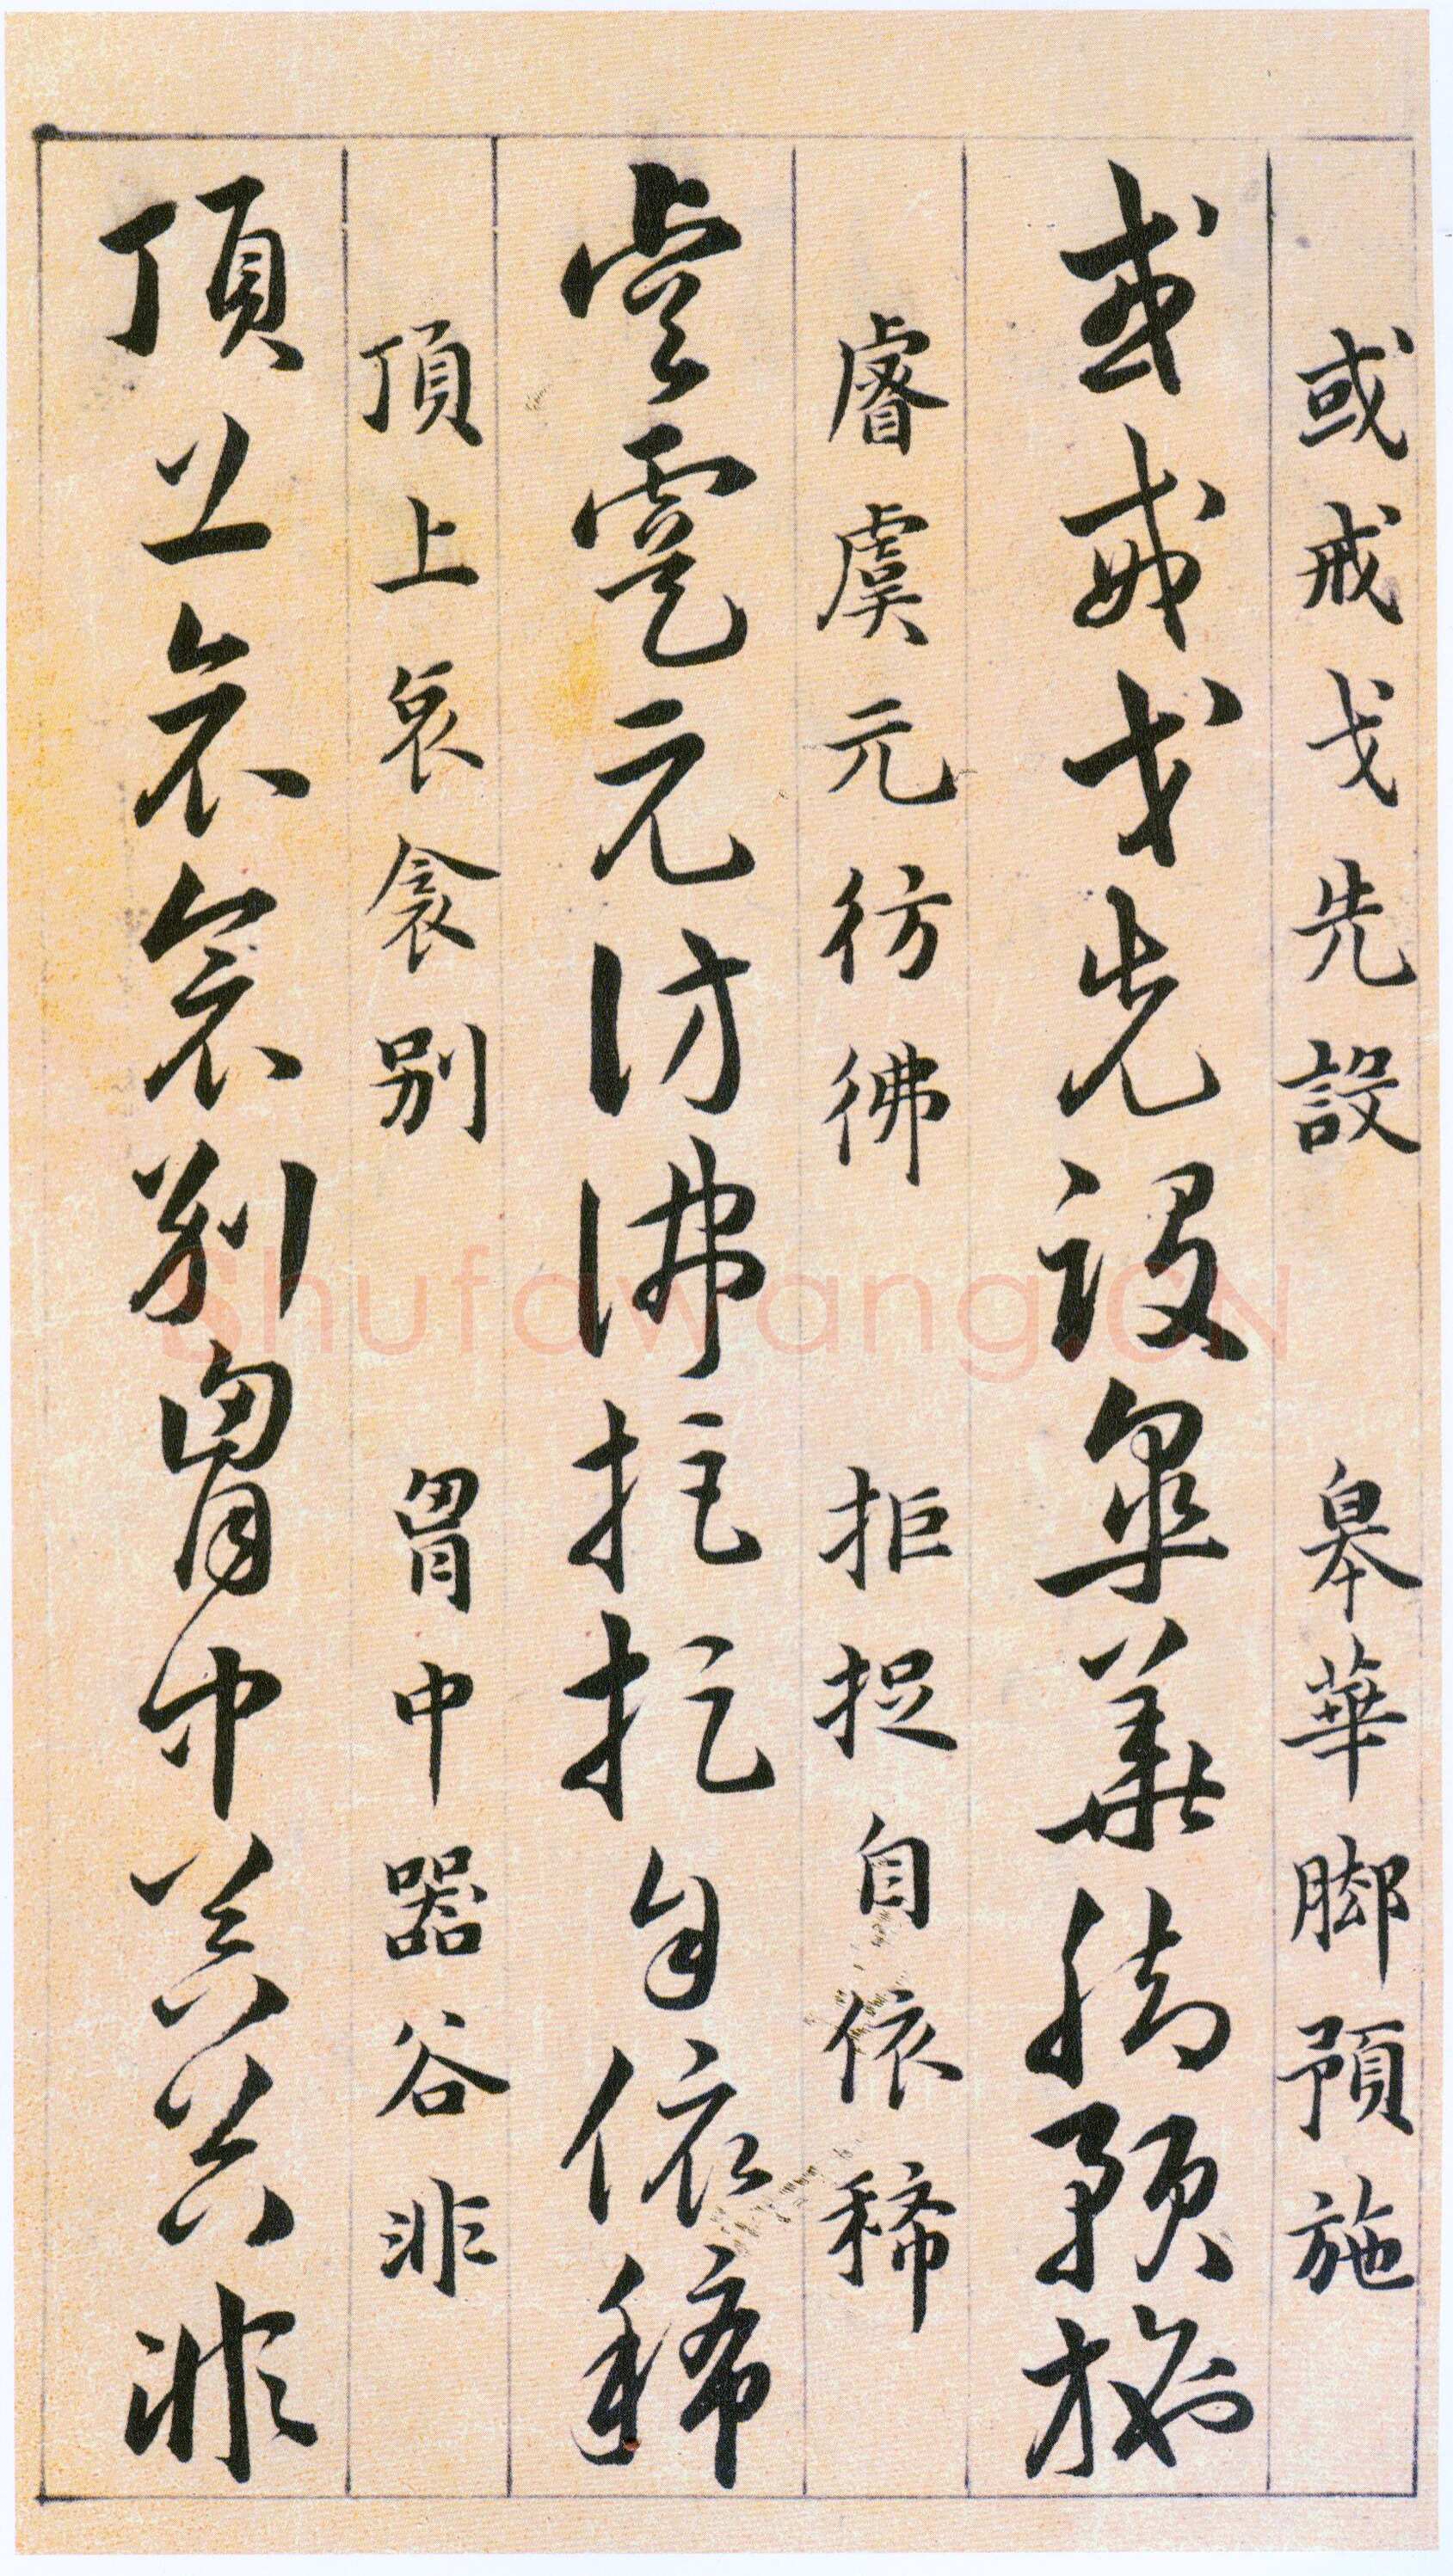 或戒戈先設 皋華脚預施
或戒戈先設皋華脚預施
睿虞元彷彿 拒捉自依稀
睿虞元彷彿拒捉自依稀
頂上哀衾別 胷中器谷非
頂上哀衾別胷中器谷非
Shufawang.CN